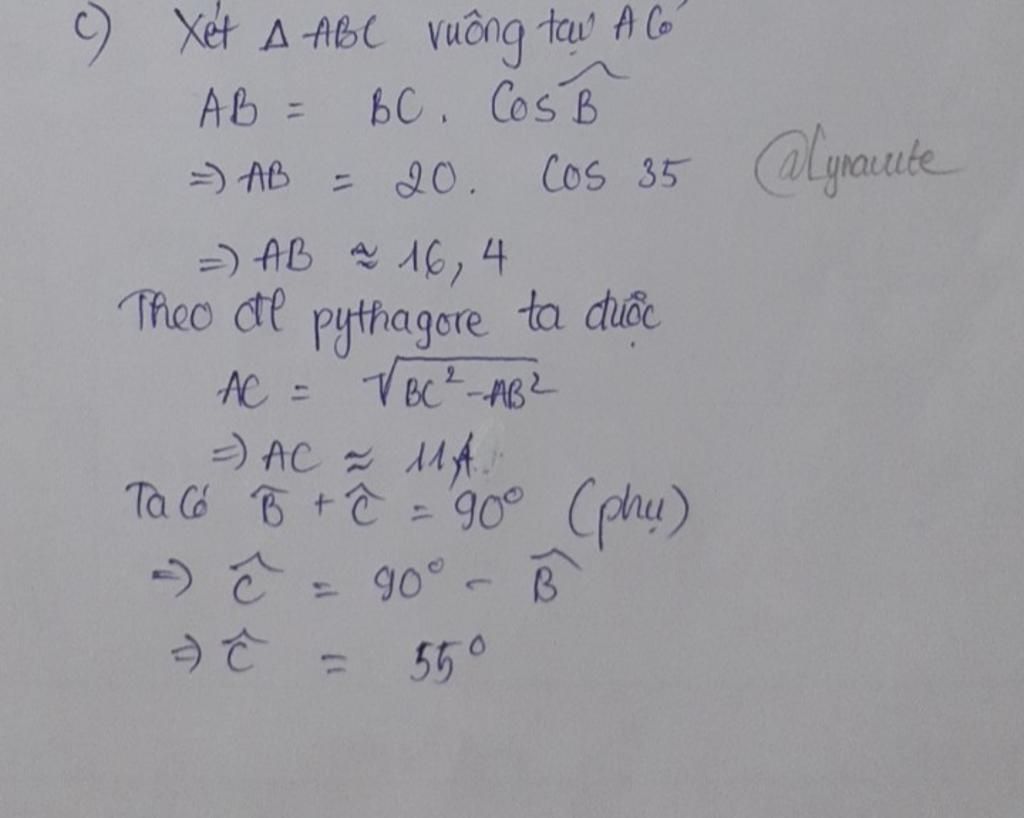 c) Xét Δ ABC vuông tại A có
AB = BC . Cos B̂
=> AB = 20. Cos 35 @Lynauute
=> AB ≈ 16,4
Theo đl pythagore ta được
AC = √BC² - AB²
=> AC ≈ 11
Ta có B̂ + Ĉ = 90° (phụ)
=> Ĉ = 90° - B̂
=> Ĉ = 55°